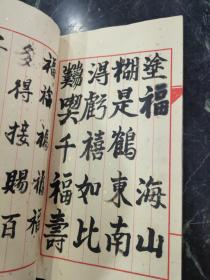 多福
得福
接福
賜福
百福
難淂糊塗
喫虧是福
千禧鶴
福如東海
壽比南山